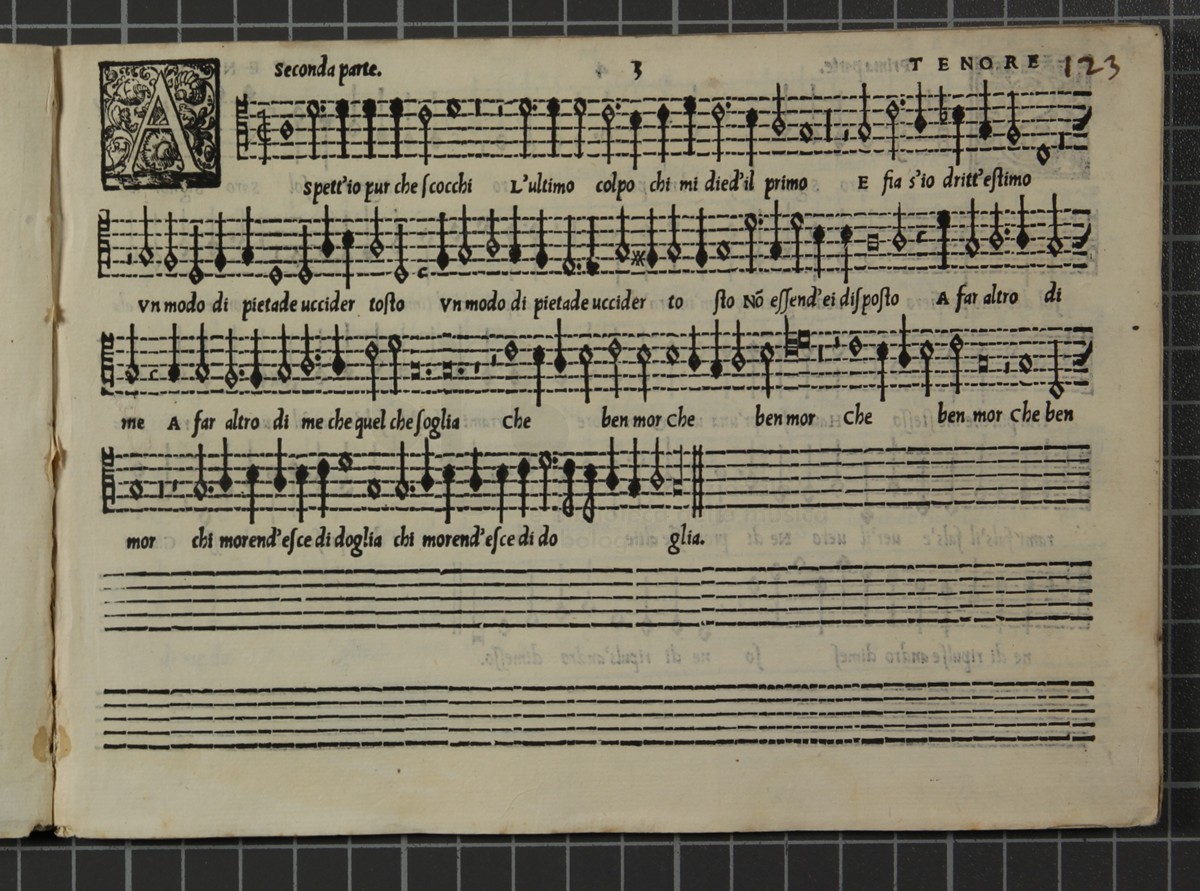 Seconda parte. 3 TENORE 123
A
spett'io pur che scocchi L'ultimo colpo chi mi died'il primo E fia s'io dritt'estimo
Vn modo di pietade uccider tosto Vn modo di pietade uccider to sto Nõ essend'ei disposto A far altro di
me A far altro di me che quel che soglia Che ben mor Che ben mor Che ben mor Che ben
mor chi morend'esce di doglia chi morend'esce di do glia.